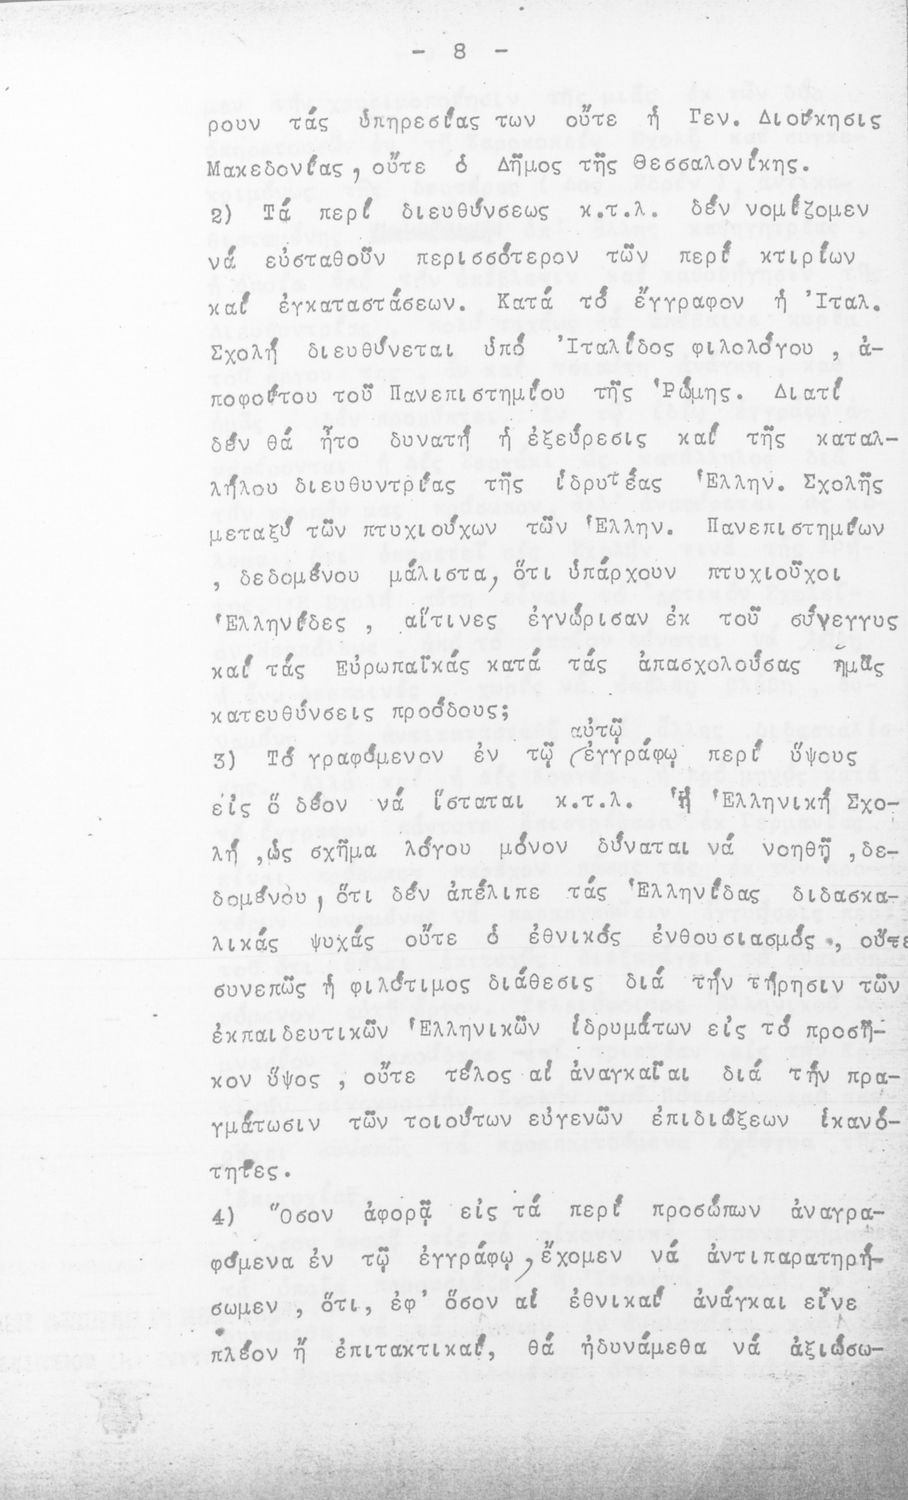 - 8 -
ρουν τάς ὑπηρεσίας των οὔτε ἡ Γεν. Διοίκησις
Μακεδονίας, οὔτε ὁ Δῆμος τῆς Θεσσαλονίκης.
2) Τά περί διευθύνσεως κ.τ.λ. δέν νομίζομεν
νά εὐσταθοῦν περισσότερον τῶν περί κτιρίων
καί ἐγκαταστάσεων. Κατά τό ἔγγραφον ἡ Ἰταλ.
Σχολή διευθύνεται ὑπό Ἰταλίδος φιλολόγου , ἀ-
ποφοίτου τοῦ Πανεπιστημίου τῆς Ῥώμης. Διατί
δέν θά ἦτο δυνατή ἡ ἐξεύρεσις καί τῆς καταλ-
λήλου διευθυντρίας τῆς ἱδρυτέας Ἑλλην. Σχολῆς
μεταξύ τῶν πτυχιούχων τῶν Ἑλλην. Πανεπιστημίων
, δεδομένου μάλιστα, ὅτι ὑπάρχουν πτυχιοῦχοι
Ἑλληνίδες , αἵτινες ἐγνώρισαν ἐκ τοῦ σύνεγγυς
καί τάς Εὐρωπαϊκάς κατά τάς ἀπασχολούσας ἡμᾶς
κατευθύνσεις προόδους;
αὐτῷ
3) Τό γραφόμενον ἐν τῷ (ἐγγράφῳ περί ὕψους
εἰς ὅ δέον νά ἵσταται κ.τ.λ. Ἡ Ἑλληνική Σχο-
λή ,ὡς σχῆμα λόγου μόνον δύναται νά νοηθῇ ,δε-
δομένου, ὅτι δέν ἀπέλιπε τάς Ἑλληνίδας διδασκα-
λικάς ψυχάς οὔτε ὁ ἐθνικός ἐνθουσιασμός , οὔτε
συνεπῶς ἡ φιλότιμος διάθεσις διά τήν τήρησιν τῶν
ἐκπαιδευτικῶν Ἑλληνικῶν ἱδρυμάτων εἰς τό προσῆ-
κον ὕψος , οὔτε τέλος αἱ ἀναγκαῖαι διά τήν πρα-
γμάτωσιν τῶν τοιούτων εὐγενῶν ἐπιδιώξεων ἱκανό-
τητες.
4) Ὅσον ἀφορᾷ εἰς τά περί προσώπων ἀναγρα-
φόμενα ἐν τῷ ἐγγράφῳ,ἔχομεν νά ἀντιπαρατηρή-
σωμεν , ὅτι, ἐφ' ὅσον αἱ ἐθνικαί ἀνάγκαι εἶνε
πλέον ἤ ἐπιτακτικαί, θά ἠδυνάμεθα νά ἀξιώσω-